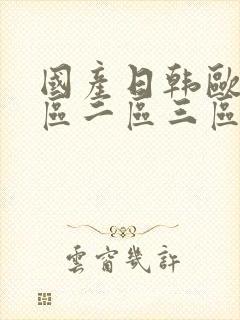 國產日韩歐
區二區三區
雲窗幾許